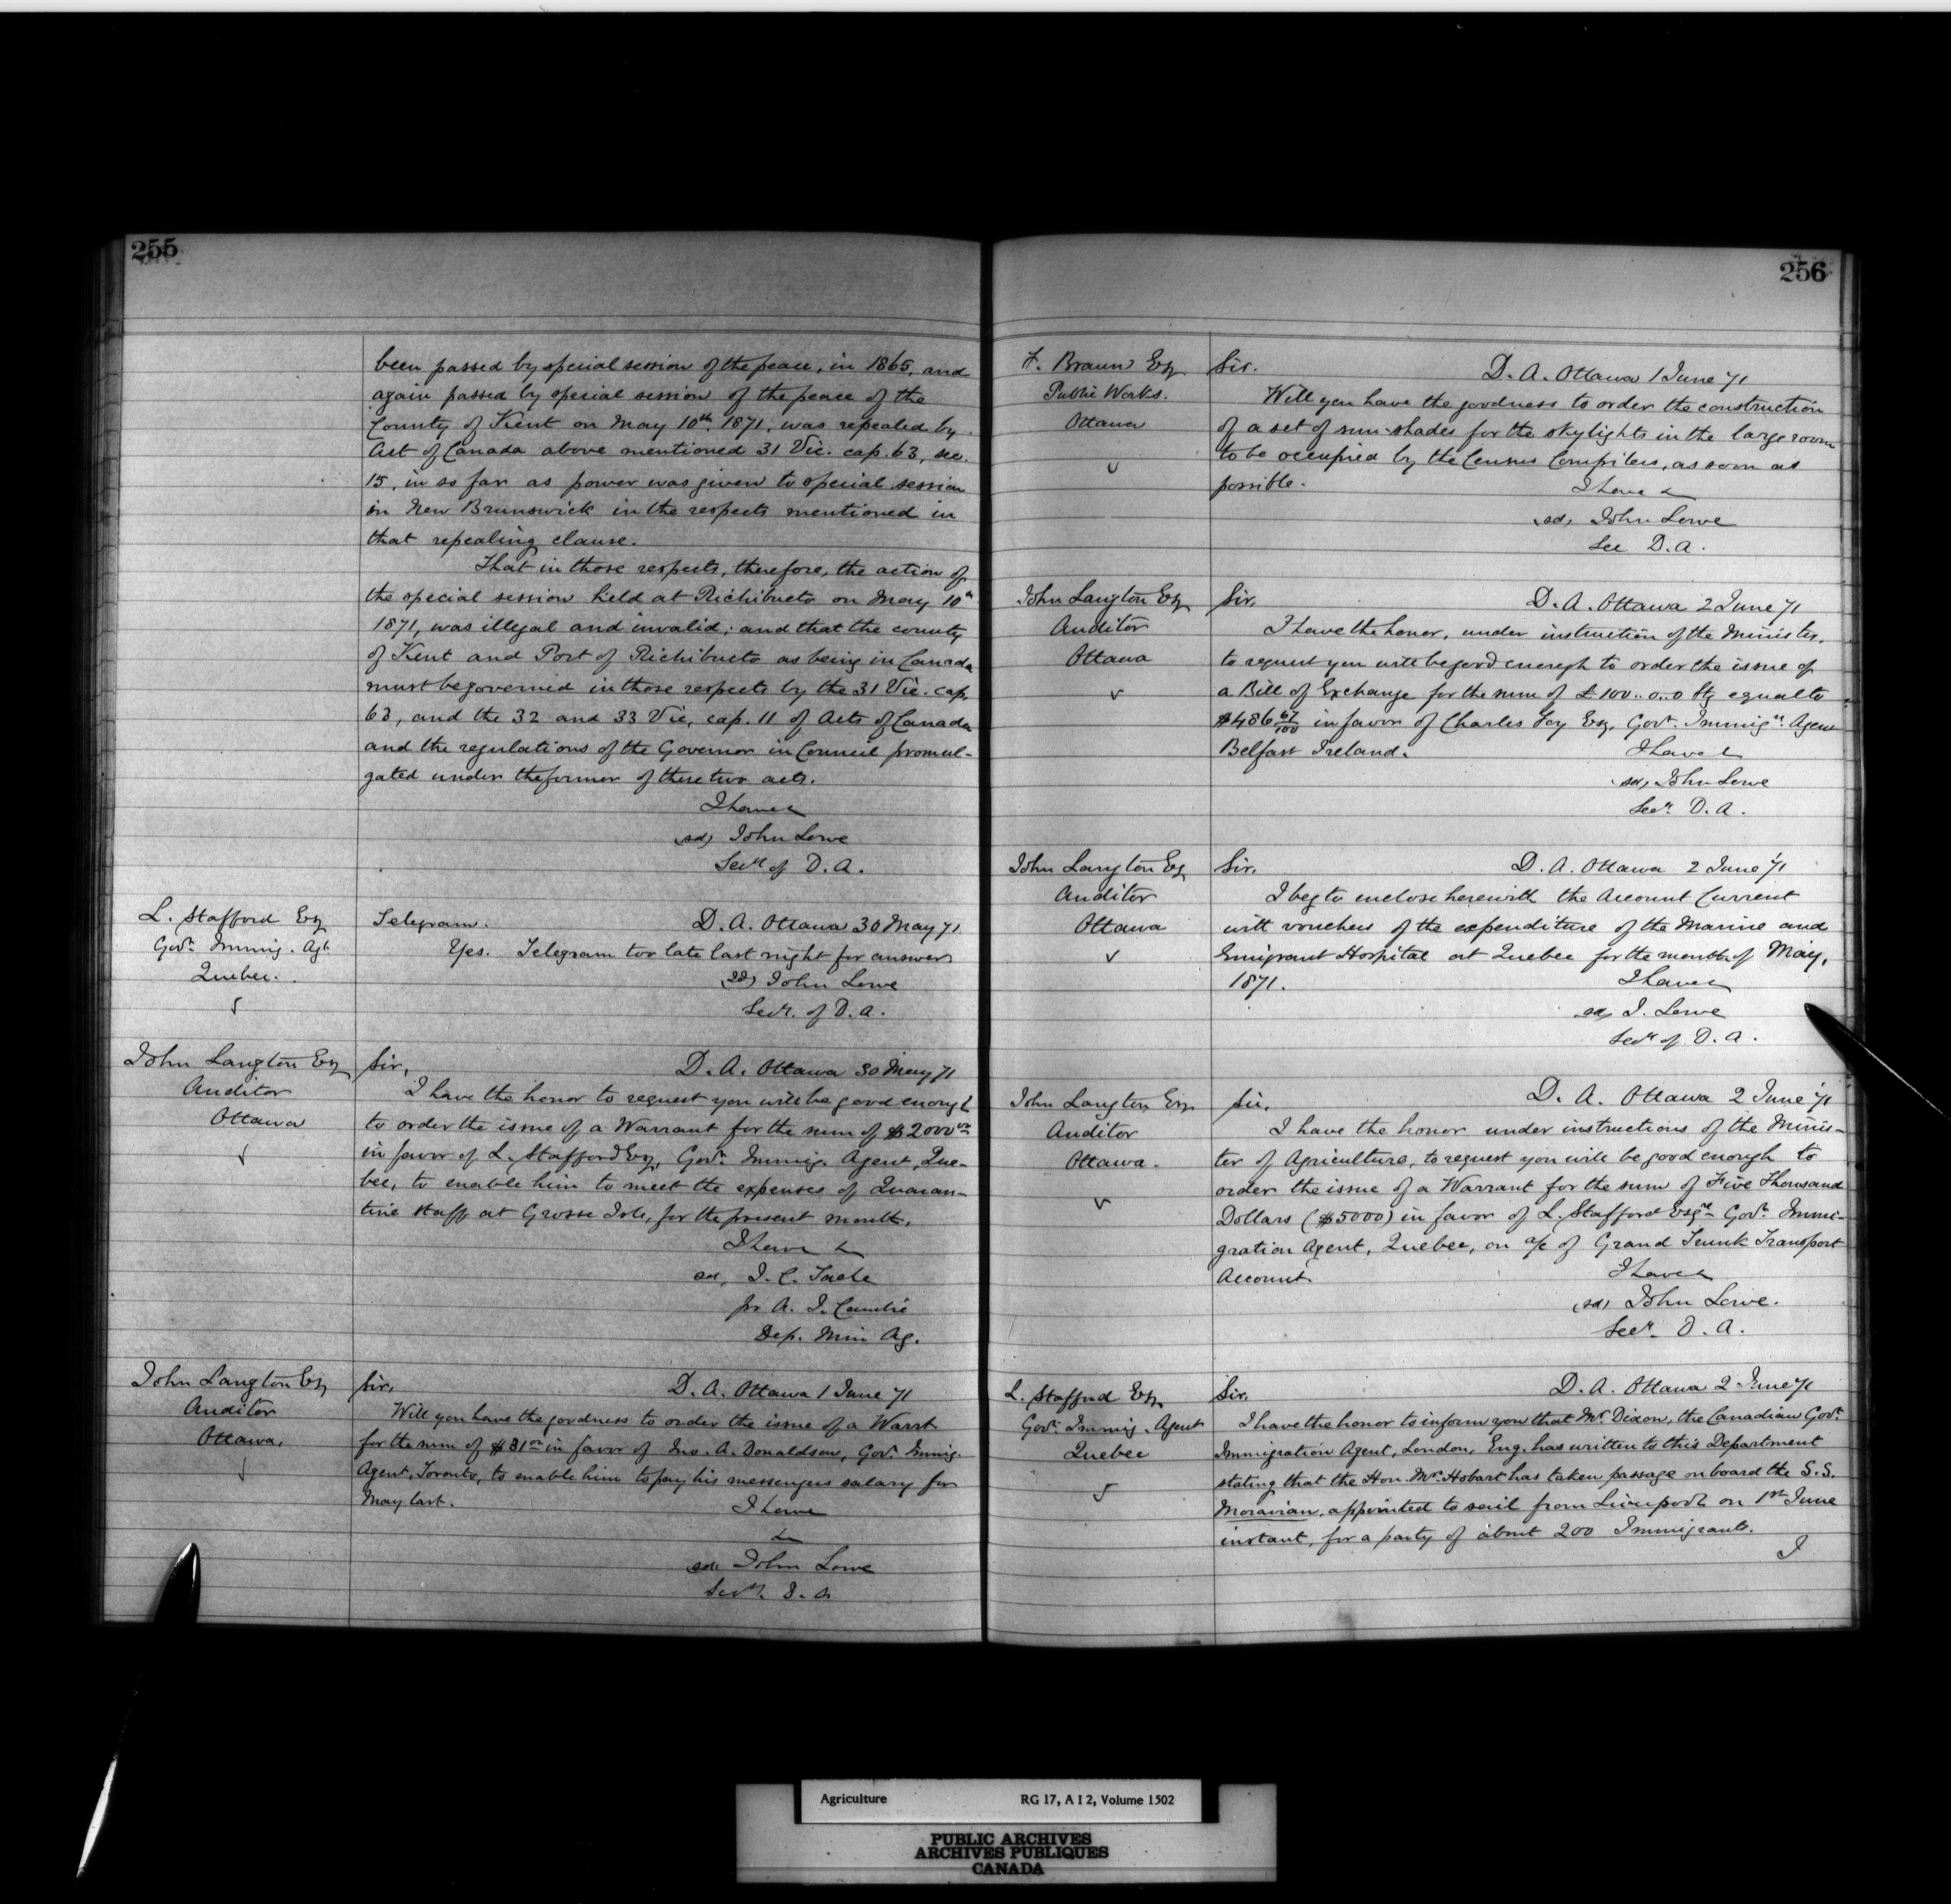 255
been passed by special session of the peace, in 1865, and
again passed by special session of the peace of the
County of Kent on May 10th 1871, was repealed by
Act of Canada above mentioned 31 Vic. cap. 63, sec.
15, in so far as power was given to special session
in New Brunswick in the respects mentioned in
that repealing clause.
That in those respects, therefore, the action of
the special session held at Richibucto on May 10th
1871, was illegal and invalid; and that the county
of Kent and Port of Richibucto as being in Canada
must be governed in those respects by the 31 Vic. cap.
63, and the 32 and 33 Vic, cap. 11 of Acts of Canada
and the regulations of the Governor in Council promul-
gated under the former of these two acts.
I have &
sd, John Lowe
Secy of D. A.
L. Stafford Esq
Govt. Immig. Agt.
Quebec.
Telegram. D. A. Ottawa 30 May 71
Yes. Telegram too late last night for answer
sd) John Lowe
Secy. of D. A.
John Langton Esq
Auditor
Ottawa
Sir, D. A. Ottawa 30 May 71
I have the honor to request you will be good enough
to order the issue of a Warrant for the sum of $2000 00
in favor of L. Stafford Esq, Govt. Immig. Agent, Que-
bec, to enable him to meet the expenses of Quaran-
tine staff at Grosse Isle, for the present month.
I have &
sd, J. C. Tache
pr A. J. Cambie
Dep. Min Ag.
John Langton Esq
Auditor
Ottawa,
Sir, D. A. Ottawa 1 June 71
Will you have the goodness to order the issue of a Warrt
for the sum of $31 00 in favor of Jno. A. Donaldson, Govt. Immig.
Agent, Toronto, to enable him to pay his messengers salary for
May last.
I have
&
sd, John Lowe
Secy. D. A
256
F. Braun Esq
Public Works.
Ottawa
Sir. D. A. Ottawa 1 June 71
Will you have the goodness to order the construction
of a set of sun-shades for the skylights in the large room
to be occupied by the Census Compilers, as soon as
possible.
I have &
sd, John Lowe
Sec D. A.
John Langton Esq
Auditor
Ottawa
Sir, D. A. Ottawa 2 June 71
I have the honor, under instruction of the Minister,
to request you will be good enough to order the issue of
a Bill of Exchange for the sum of £100..0..0 Stg equal to
$486 67/100 in favor of Charles Foy Esq, Govt. Immign. Agent
Belfast Ireland.
I have &
sd, John Lowe
Secy. D. A.
John Langton Esq
Auditor
Ottawa
Sir, D. A. Ottawa 2 June 71
I beg to enclose herewith the Account Current
with vouchers of the expenditure of the Marine and
Emigrant Hospital at Quebec for the month of May,
1871.
I have &
sd, J. Lowe
Secy of D. A.
John Langton Esq
Auditor
Ottawa.
Sir, D. A. Ottawa 2 June 71
I have the honor under instructions of the Minis-
ter of Agriculture, to request you will be good enough to
order the issue of a Warrant for the sum of Five Thousand
Dollars ($5000) in favor of L. Stafford Esqre Govt. Immi-
gration Agent, Quebec, on a/c of Grand Trunk Transport
Account.
I have &
sd, John Lowe.
Secy. D. A.
L. Stafford Esq,
Govt. Immig. Agent
Quebec
Sir, D. A. Ottawa 2 June 71
I have the honor to inform you that Mr. Dixon, the Canadian Govt.
Immigration Agent, London, Eng. has written to this Department
stating that the Hon. Mr. Hobart has taken passage on board the S.S.
Moravian, appointed to sail from Liverpool on 1st June
instant, for a party of about 200 Immigrants.
I
Agriculture RG 17, A I 2, Volume 1502
PUBLIC ARCHIVES
ARCHIVES PUBLIQUES
CANADA